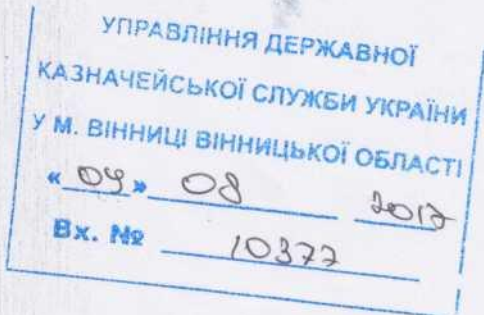 УПРАВЛІННЯ ДЕРЖАВНОЇ
КАЗНАЧЕЙСЬКОЇ СЛУЖБИ УКРАЇНИ
У М. ВІННИЦІ ВІННИЦЬКОЇ ОБЛАСТІ
«04» 08 2017
Вх. № 10377